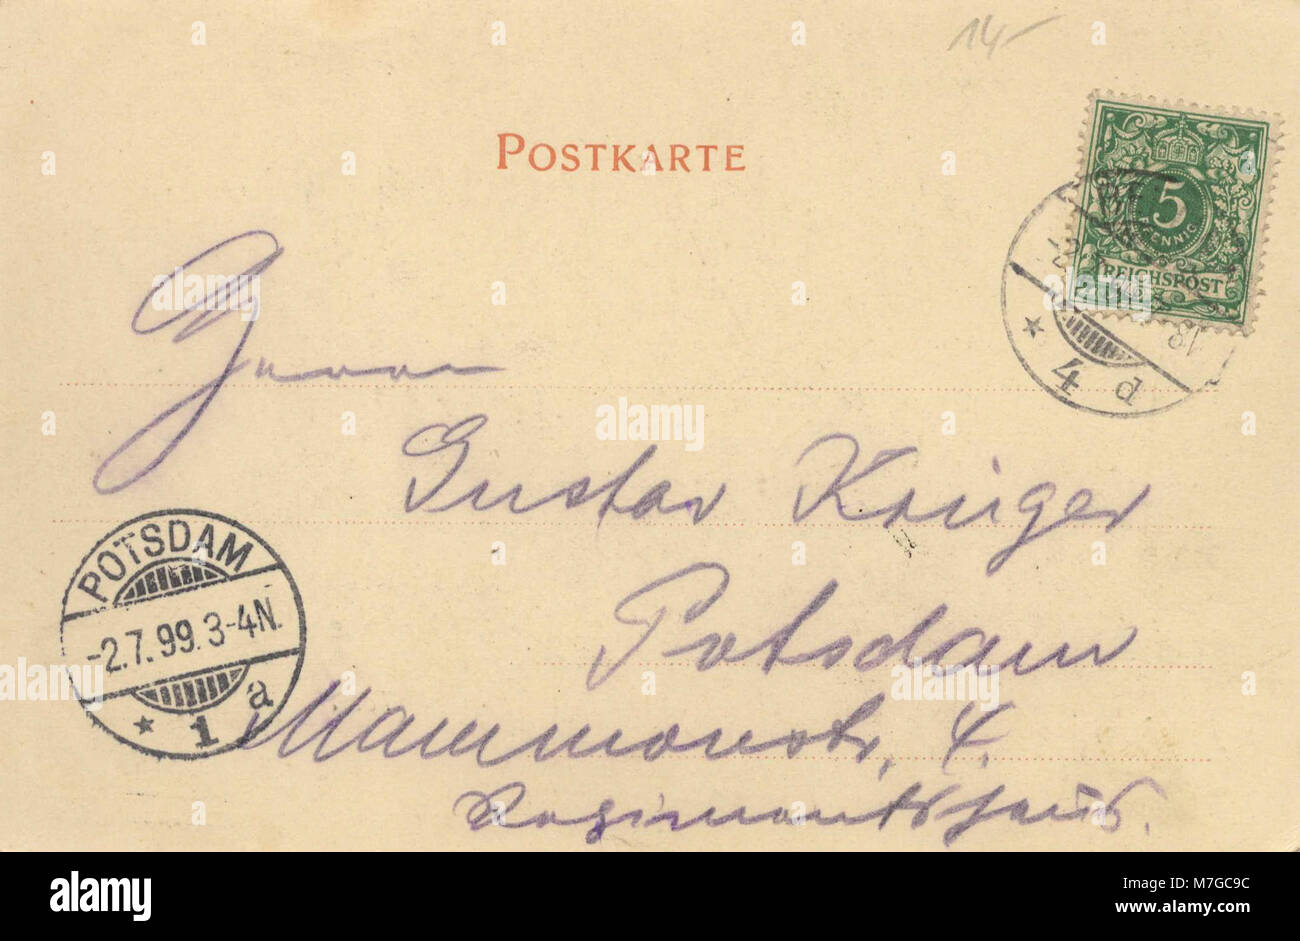 14-
POSTKARTE
5
PFENNIG
REICHSPOST
4 d
Herrn
Gustav Krüger
Potsdam
POTSDAM
-2.7.99.3-4N.
* 1 a
Mammonstr. 4.
Regimentshaus.
alamy
Image ID: M7GC9C
www.alamy.com